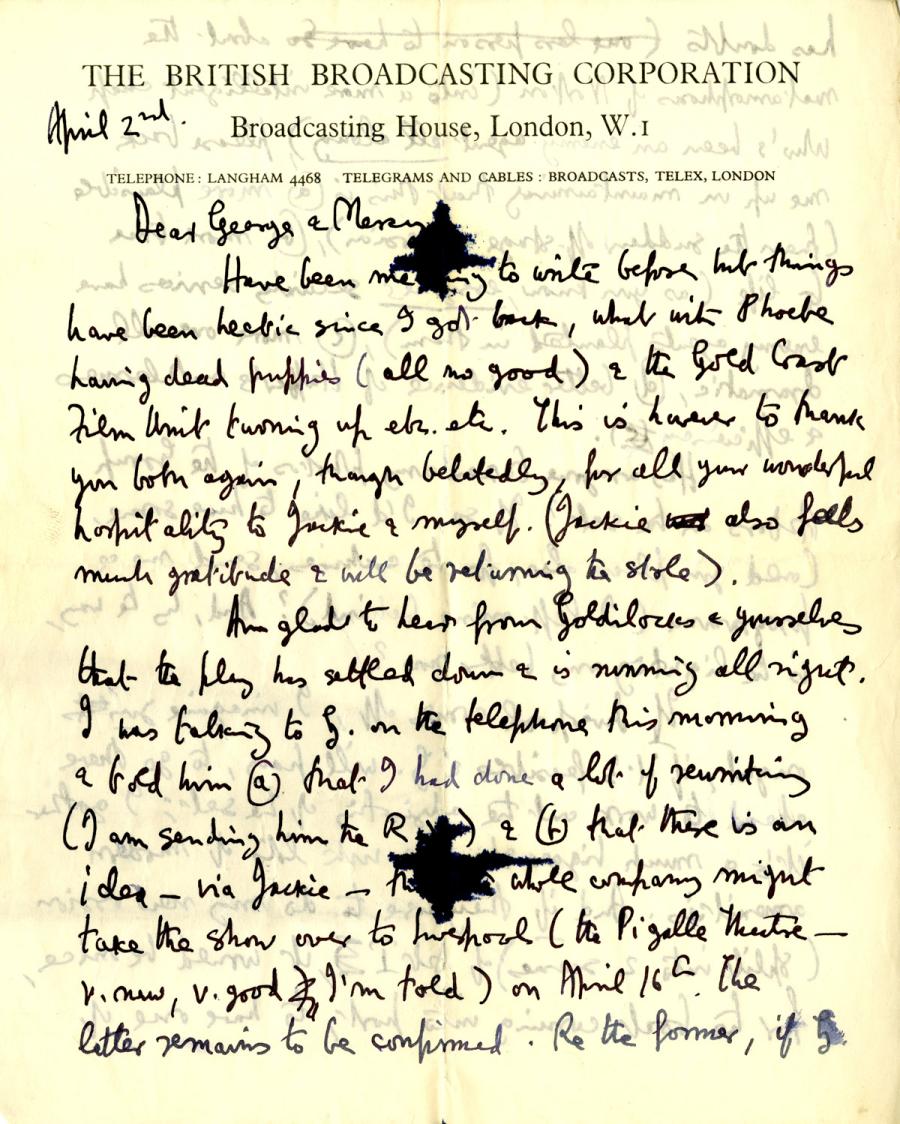 THE BRITISH BROADCASTING CORPORATION
April 2nd. Broadcasting House, London, W.1
TELEPHONE: LANGHAM 4468 TELEGRAMS AND CABLES: BROADCASTS, TELEX, LONDON
Dear George & Mercy
Have been to write before but things
have been hectic since I got back, what with Phoebe
having dead puppies (all no good) & the Gold Coast
Film Unit turning up etc. etc. This is however to thank
you both again, though belatedly, for all your wonderful
hospitality to Jackie & myself. (Jackie also feels
much gratitude & will be returning the stole).
Am glad to hear from Goldilocks & yourselves
that the play has settled down & is running all right.
I was talking to G. on the telephone this morning
& told him (a) that I had done a lot of rewriting
(I am sending him the R ) & (b) that there is an
idea — via Jackie — whole company might
take the show over to Liverpool (the Pigalle Theatre —
v. new, v. good I'm told) on April 16th. The
latter remains to be confirmed. Re the former, if G.